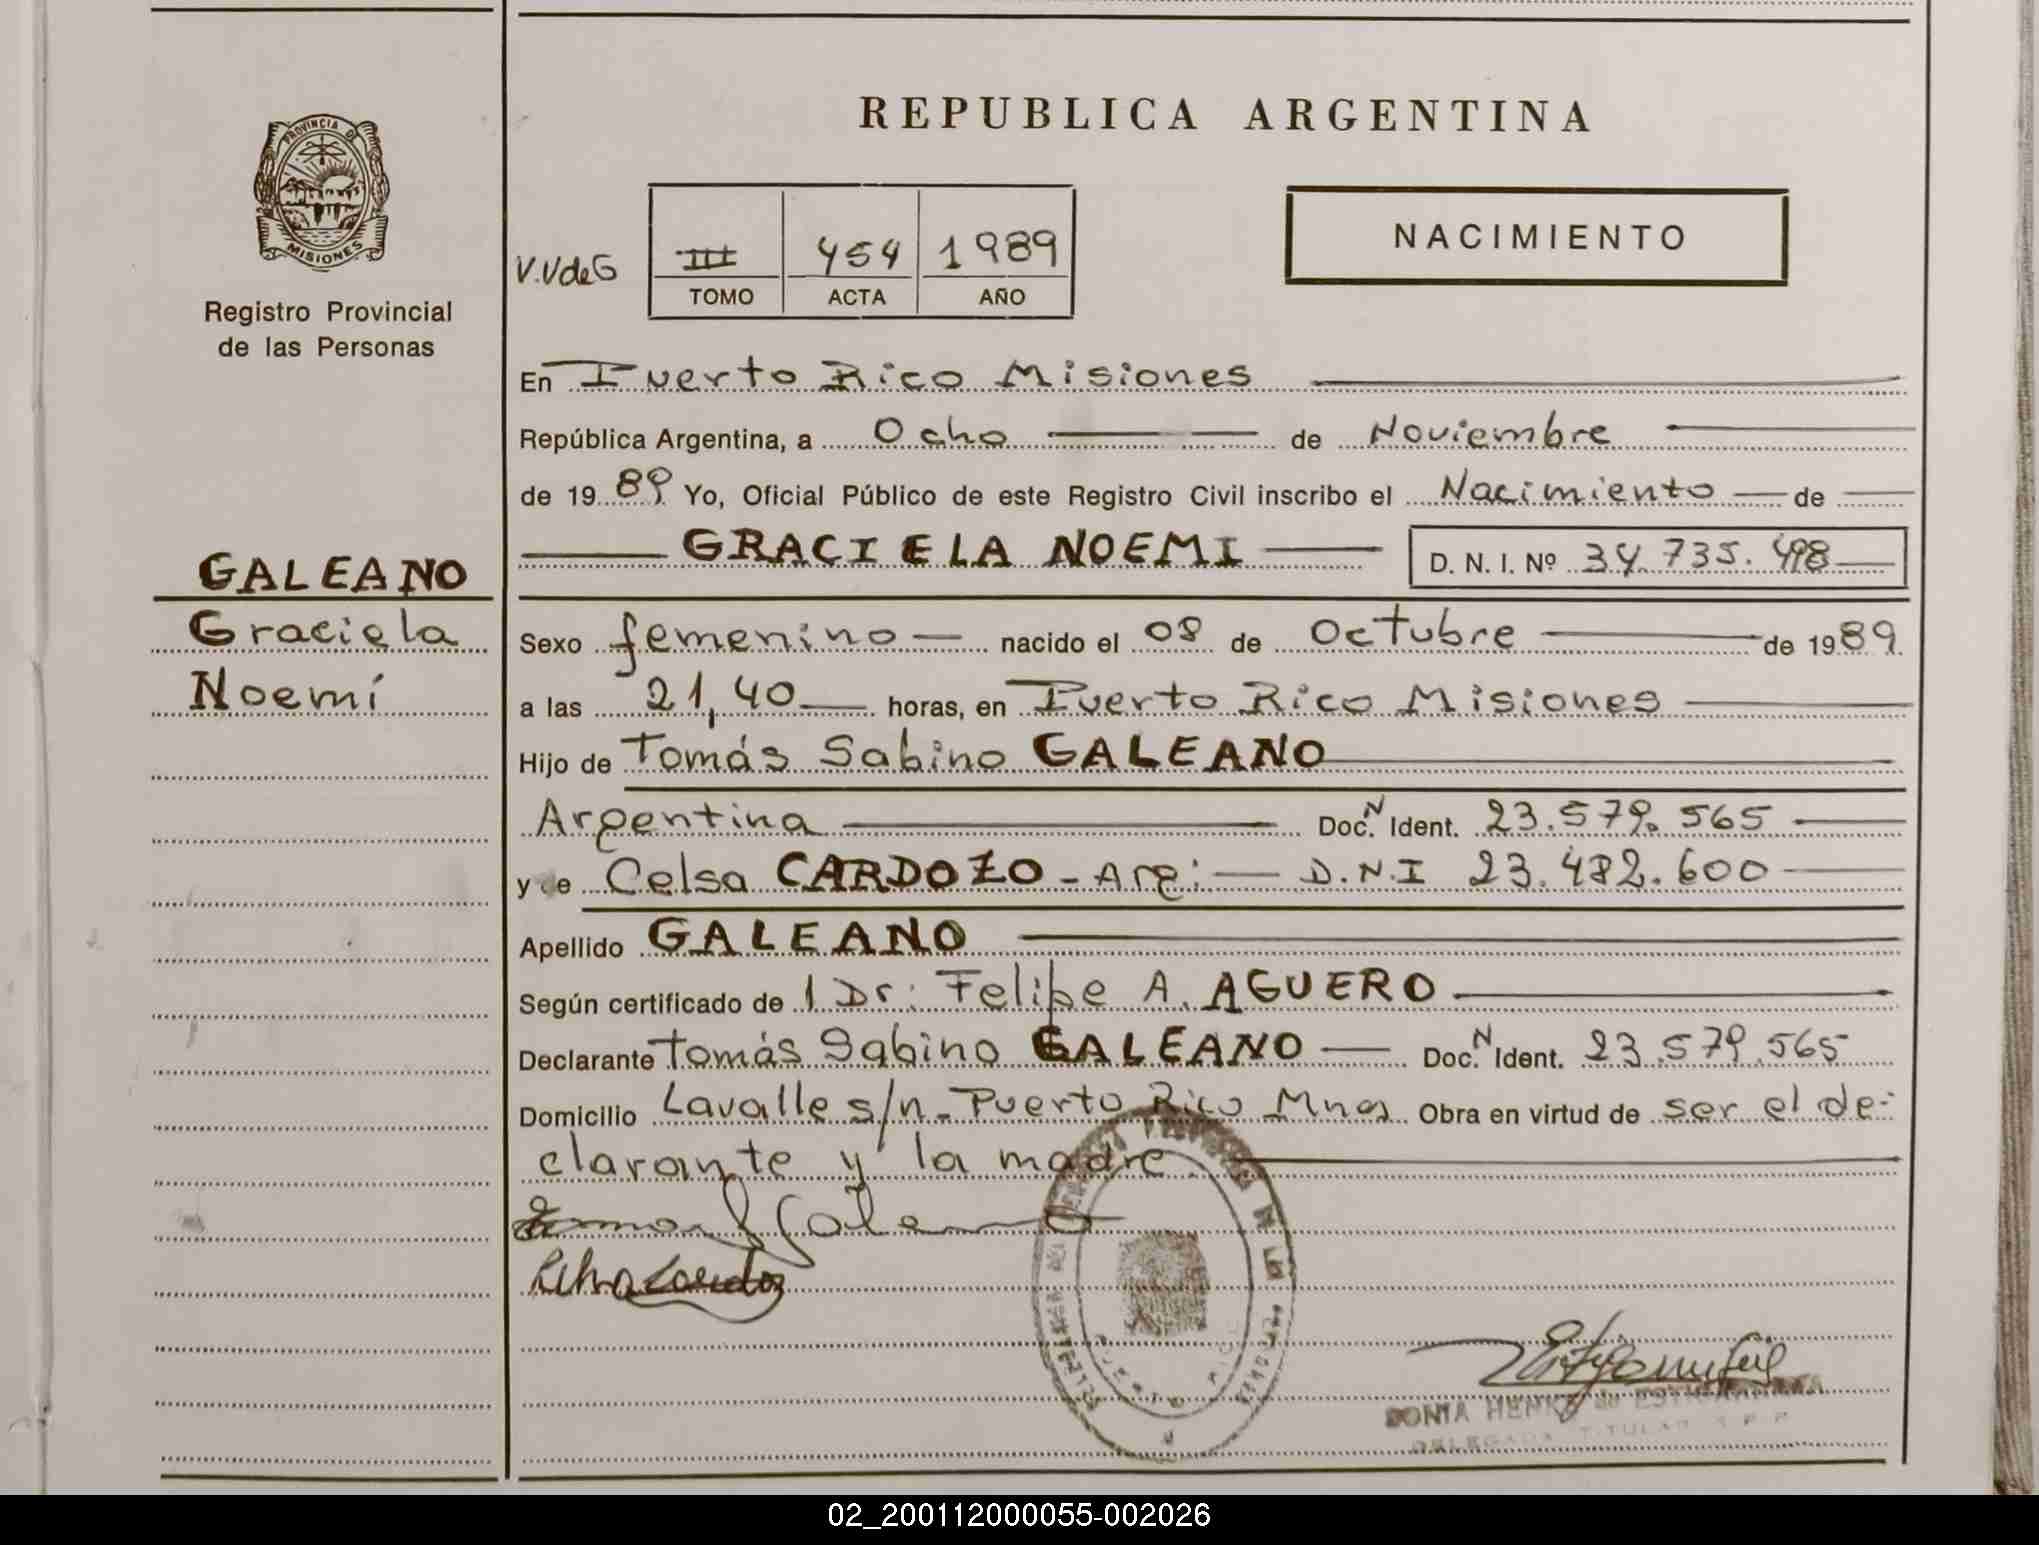 REPUBLICA ARGENTINA
PROVINCIA DE
MISIONES
Registro Provincial
de las Personas
V.V de G
III 454 1989
TOMO ACTA AÑO
NACIMIENTO
En Puerto Rico Misiones
República Argentina, a Ocho de Noviembre
de 1989 Yo, Oficial Público de este Registro Civil inscribo el Nacimiento de
GRACIELA NOEMI D. N. I. Nº 34.735.498
GALEANO
Graciela
Noemí
Sexo femenino nacido el 08 de Octubre de 1989
a las 21,40 horas, en Puerto Rico Misiones
Hijo de Tomás Sabino GALEANO
Argentina Doc. N Ident. 23.579.565
y de Celsa CARDOZO - Arg: D.N.I 23.482.600
Apellido GALEANO
Según certificado de 1 Dr: Felipe A. AGUERO
Declarante Tomás Sabino GALEANO Doc. N Ident. 23.579.565
Domicilio Lavalle s/n. Puerto Rico Mnes Obra en virtud de ser el de-
clarante y la madre
SONIA HENN de
DELEGADA TITULAR
02_200112000055-002026